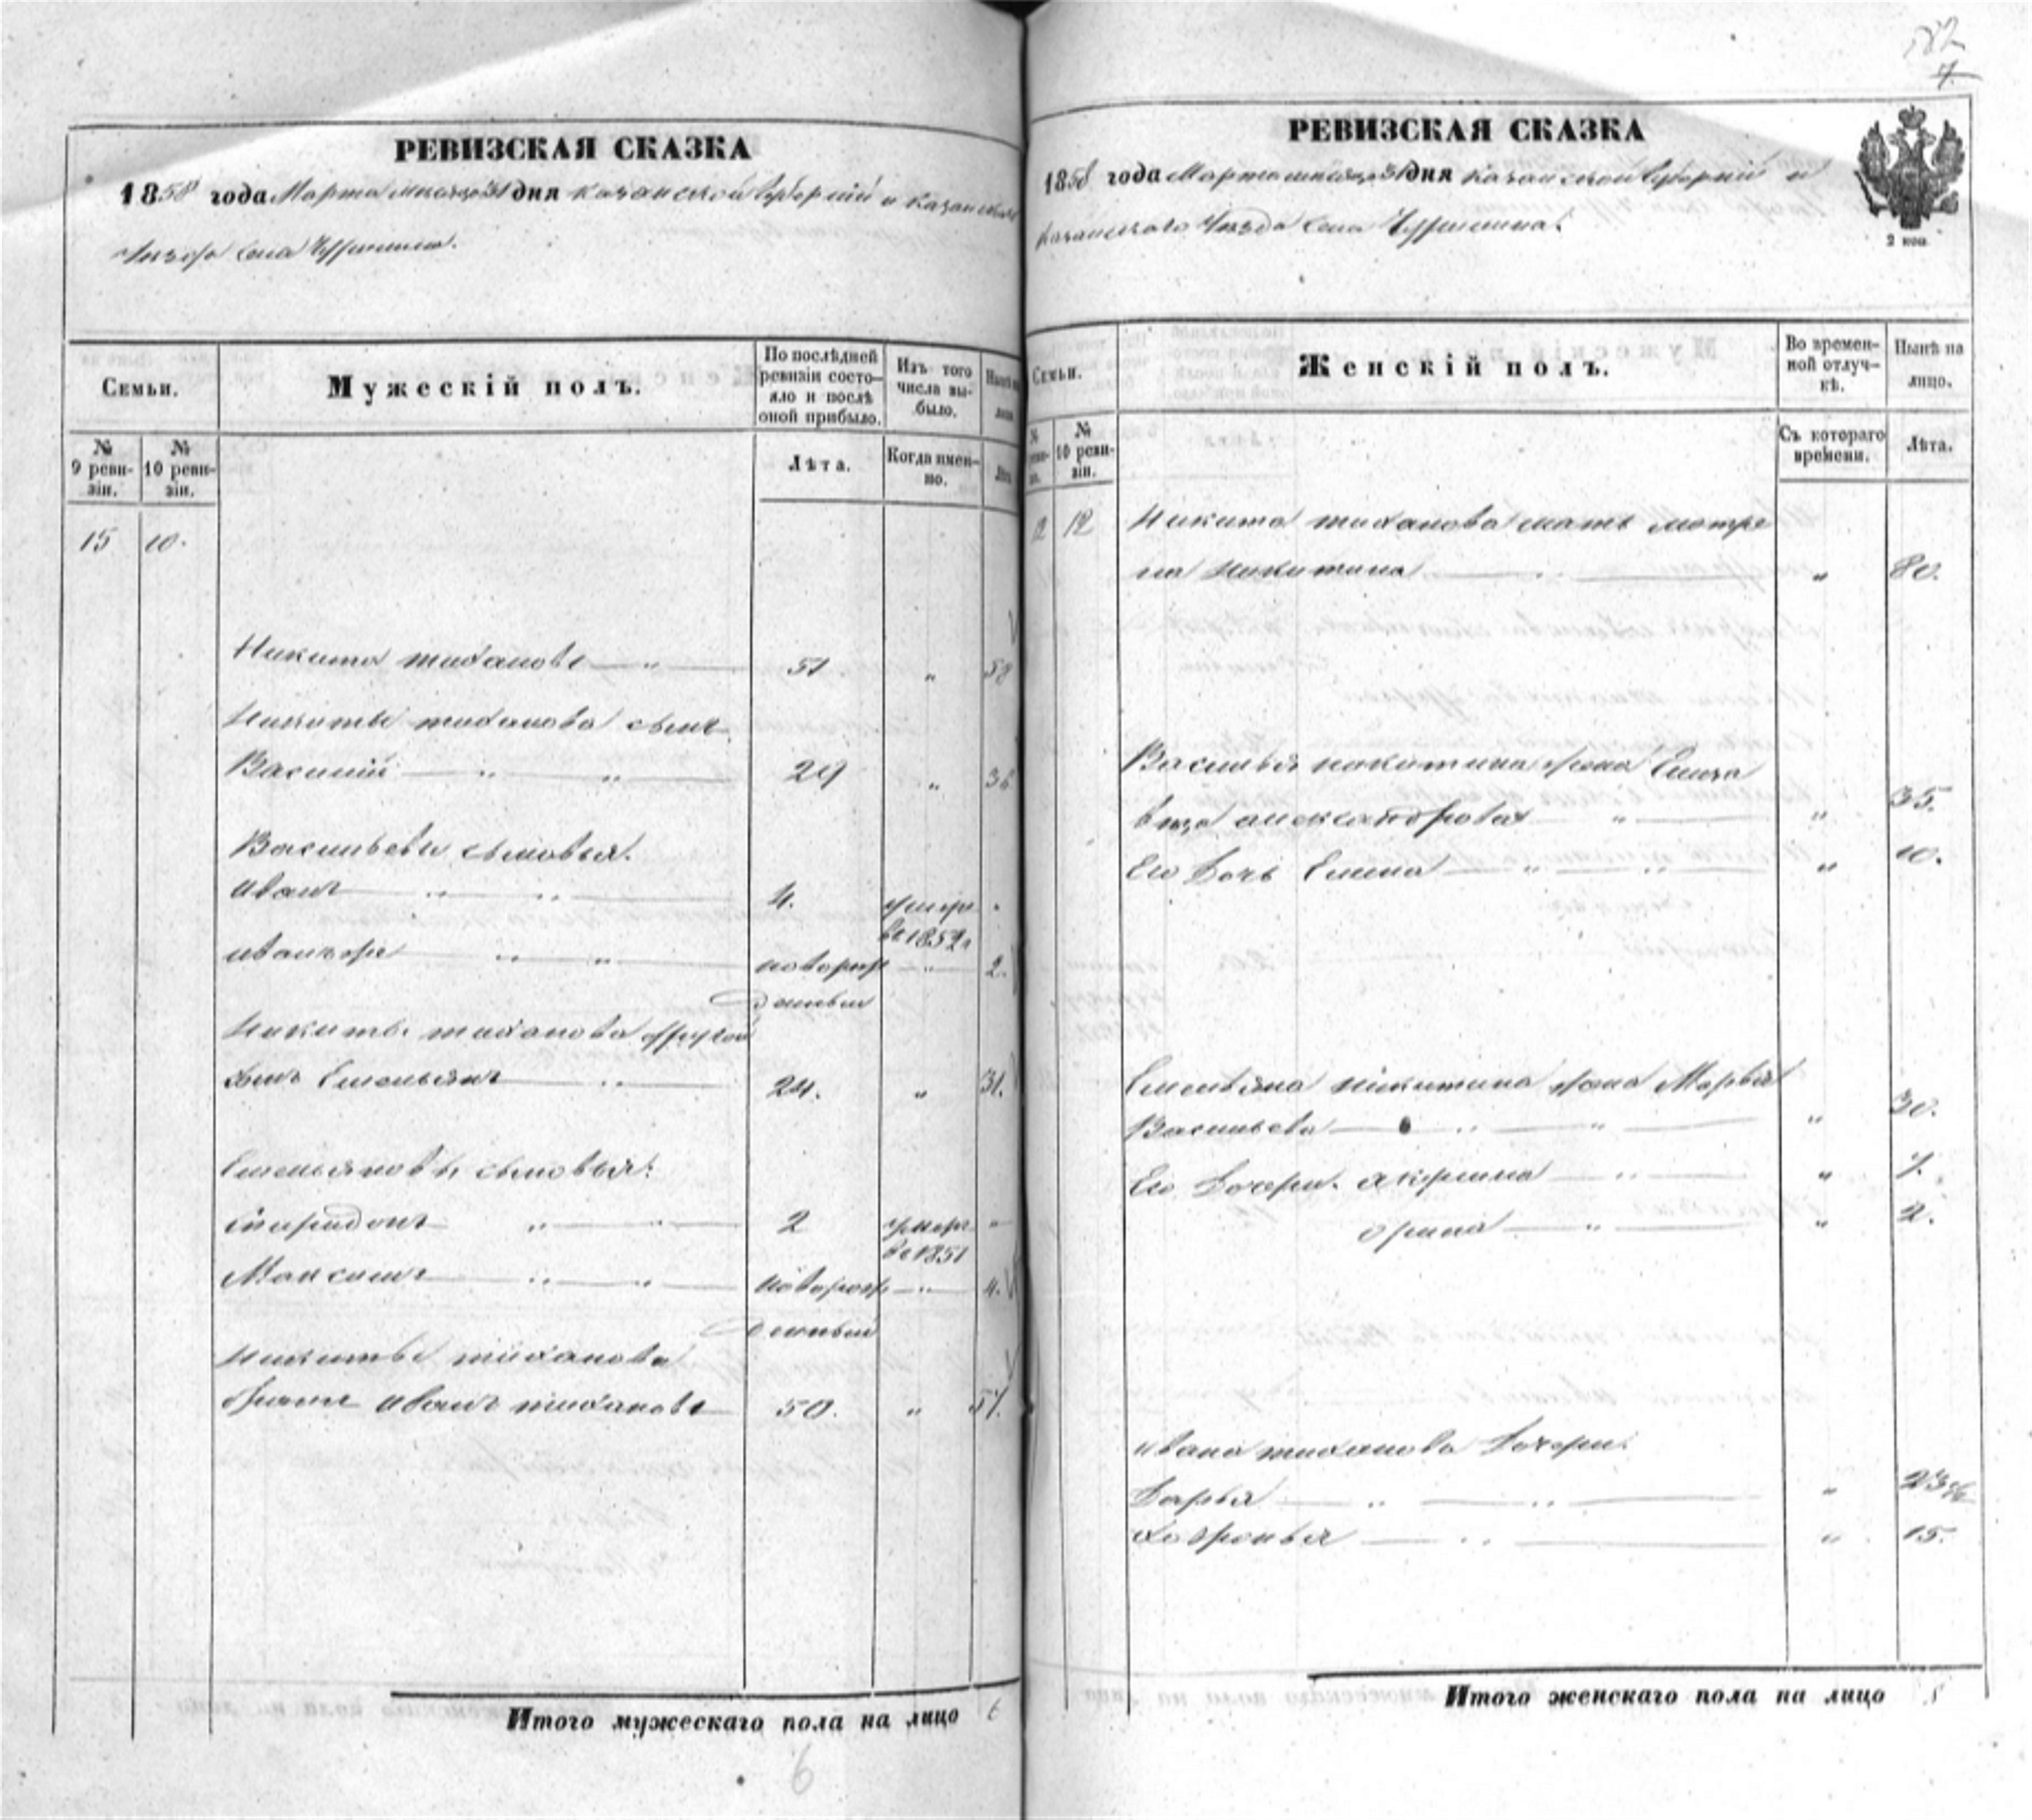 РЕВИЗСКАЯ СКАЗКА
1858 года Марта мѣсяца 31 дня Казанской Губерніи и Казанскаго
Уѣзда Села
Семьи.
Мужескій полъ.
По послѣдней ревизіи состо-
яло и послѣ оной прибыло.
Изъ того числа вы-
было.
Нынѣ на лицо.
№ 9 реви-
зіи.
№ 10 реви-
зіи.
Лѣта.
Когда имен-
но.
Лѣта
15 10.
Никита тихановъ — " — 51 " 58
Никиты тиханова сынъ
Василий — " — " — 29 " 36
Васильевы сыновья.
Иванъ — " — " — 4. умеръ "
въ 1852 г
иванъ же — " — " — новорож — " — 2.
денный
Никиты тиханова другой
сынъ Емельянъ — " — 24. " 31.
Емельяновы сыновья:
Спиридонъ — " — " — 2 умеръ "
въ 1851
Максимъ — " — " — новорож — " — 4.
денный
Никиты тиханова
братъ иванъ тихановъ — 50. " 57.
Итого мужескаго пола на лицо 6
6
582
7.
РЕВИЗСКАЯ СКАЗКА
1858 года Марта мѣсяца 31 дня Казанской Губерніи и
Казанскаго Уѣзда Села
2 коп.
Семьи.
Женскій полъ.
Во времен-
ной отлуч-
кѣ.
Нынѣ на лицо.
№ 10 реви-
зіи.
Съ котораго времени.
Лѣта.
12 12 Никита тиханова мать матре
на Никитина — " — " 80.
Василья никитина жена Елиза
вета александрова — " — " 35.
Его дочь Елена — " — " — " 10.
Емельяна никитина жена Марья
Васильева — " — " — " 30.
Его дочери. акулина — " — " 7.
орина — " — " 2.
ивана тиханова дочери.
Дарья — " — " — " 23
Хавронья — " — " 15.
Итого женскаго пола на лицо 8